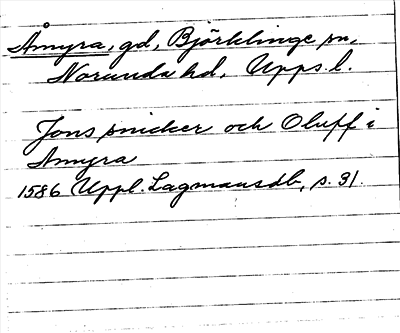 Åmyra, gd, Björklinge sn,
Norunda hd, Upps. l.
Jons snicker och Oluff i
Åmyra
1586 Uppl. Lagmansdb, s. 31.